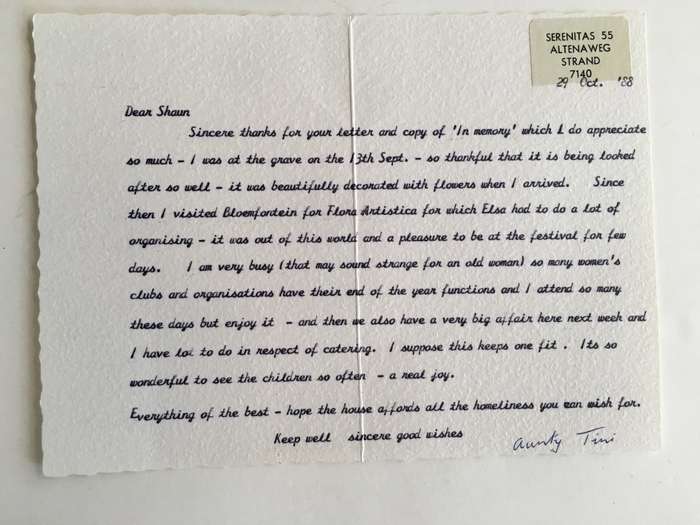 SERENITAS 55
ALTENAWEG
STRAND
7140
29 Oct. '88
Dear Shaun
Sincere thanks for your letter and copy of 'In memory' which I do appreciate
so much - I was at the grave on the 13th Sept. - so thankful that it is being looked
after so well - it was beautifully decorated with flowers when I arrived. Since
then I visited Bloemfontein for Flora Artistica for which Elsa had to do a lot of
organising - it was out of this world and a pleasure to be at the festival for few
days. I am very busy (that may sound strange for an old woman) so many women's
clubs and organisations have their end of the year functions and I attend so many
these days but enjoy it - and then we also have a very big affair here next week and
I have lot to do in respect of catering. I suppose this keeps one fit . Its so
wonderful to see the children so often - a real joy.
Everything of the best - hope the house affords all the homeliness you can wish for.
Keep well sincere good wishes
Aunty Tini